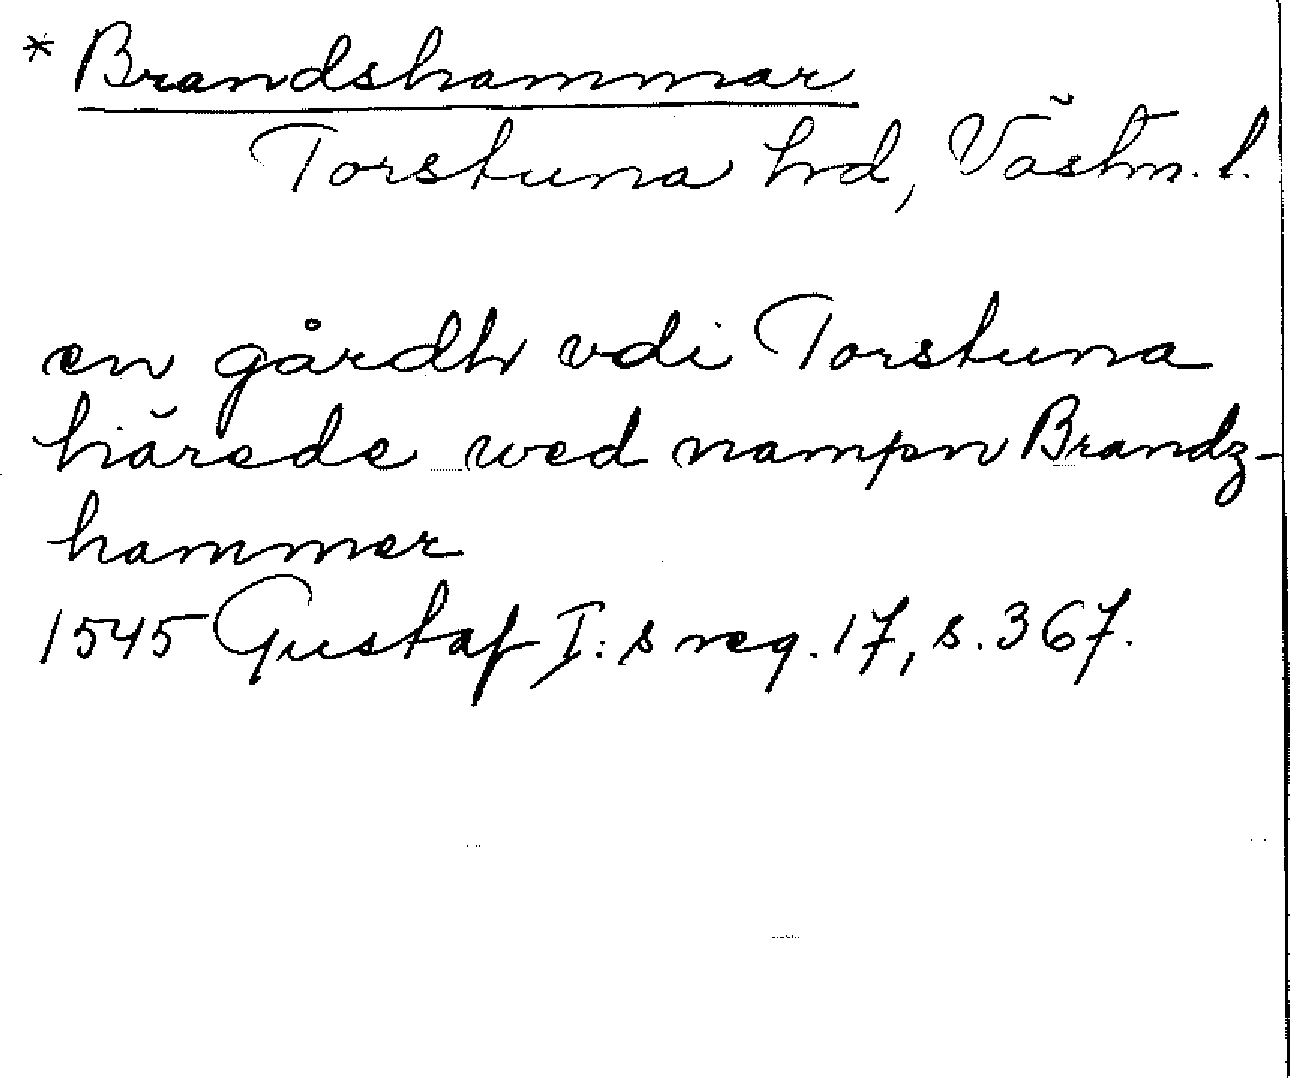 * Brandshammar
Torstuna hd, Västm. l.
en gårdh vdi Torstuna
härede wed nampn Brandz-
hammer
1545 Gustaf I:s reg. 17, s. 367.